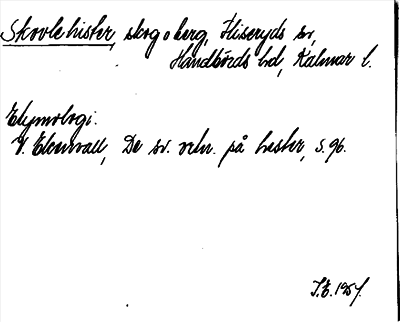 Skovlehister, skog o berg, Fliseryds sn,
Handbörds hd, Kalmar l.
Etymologi.
V. Ekenvall, De sv. selnr. på hester, s. 96.